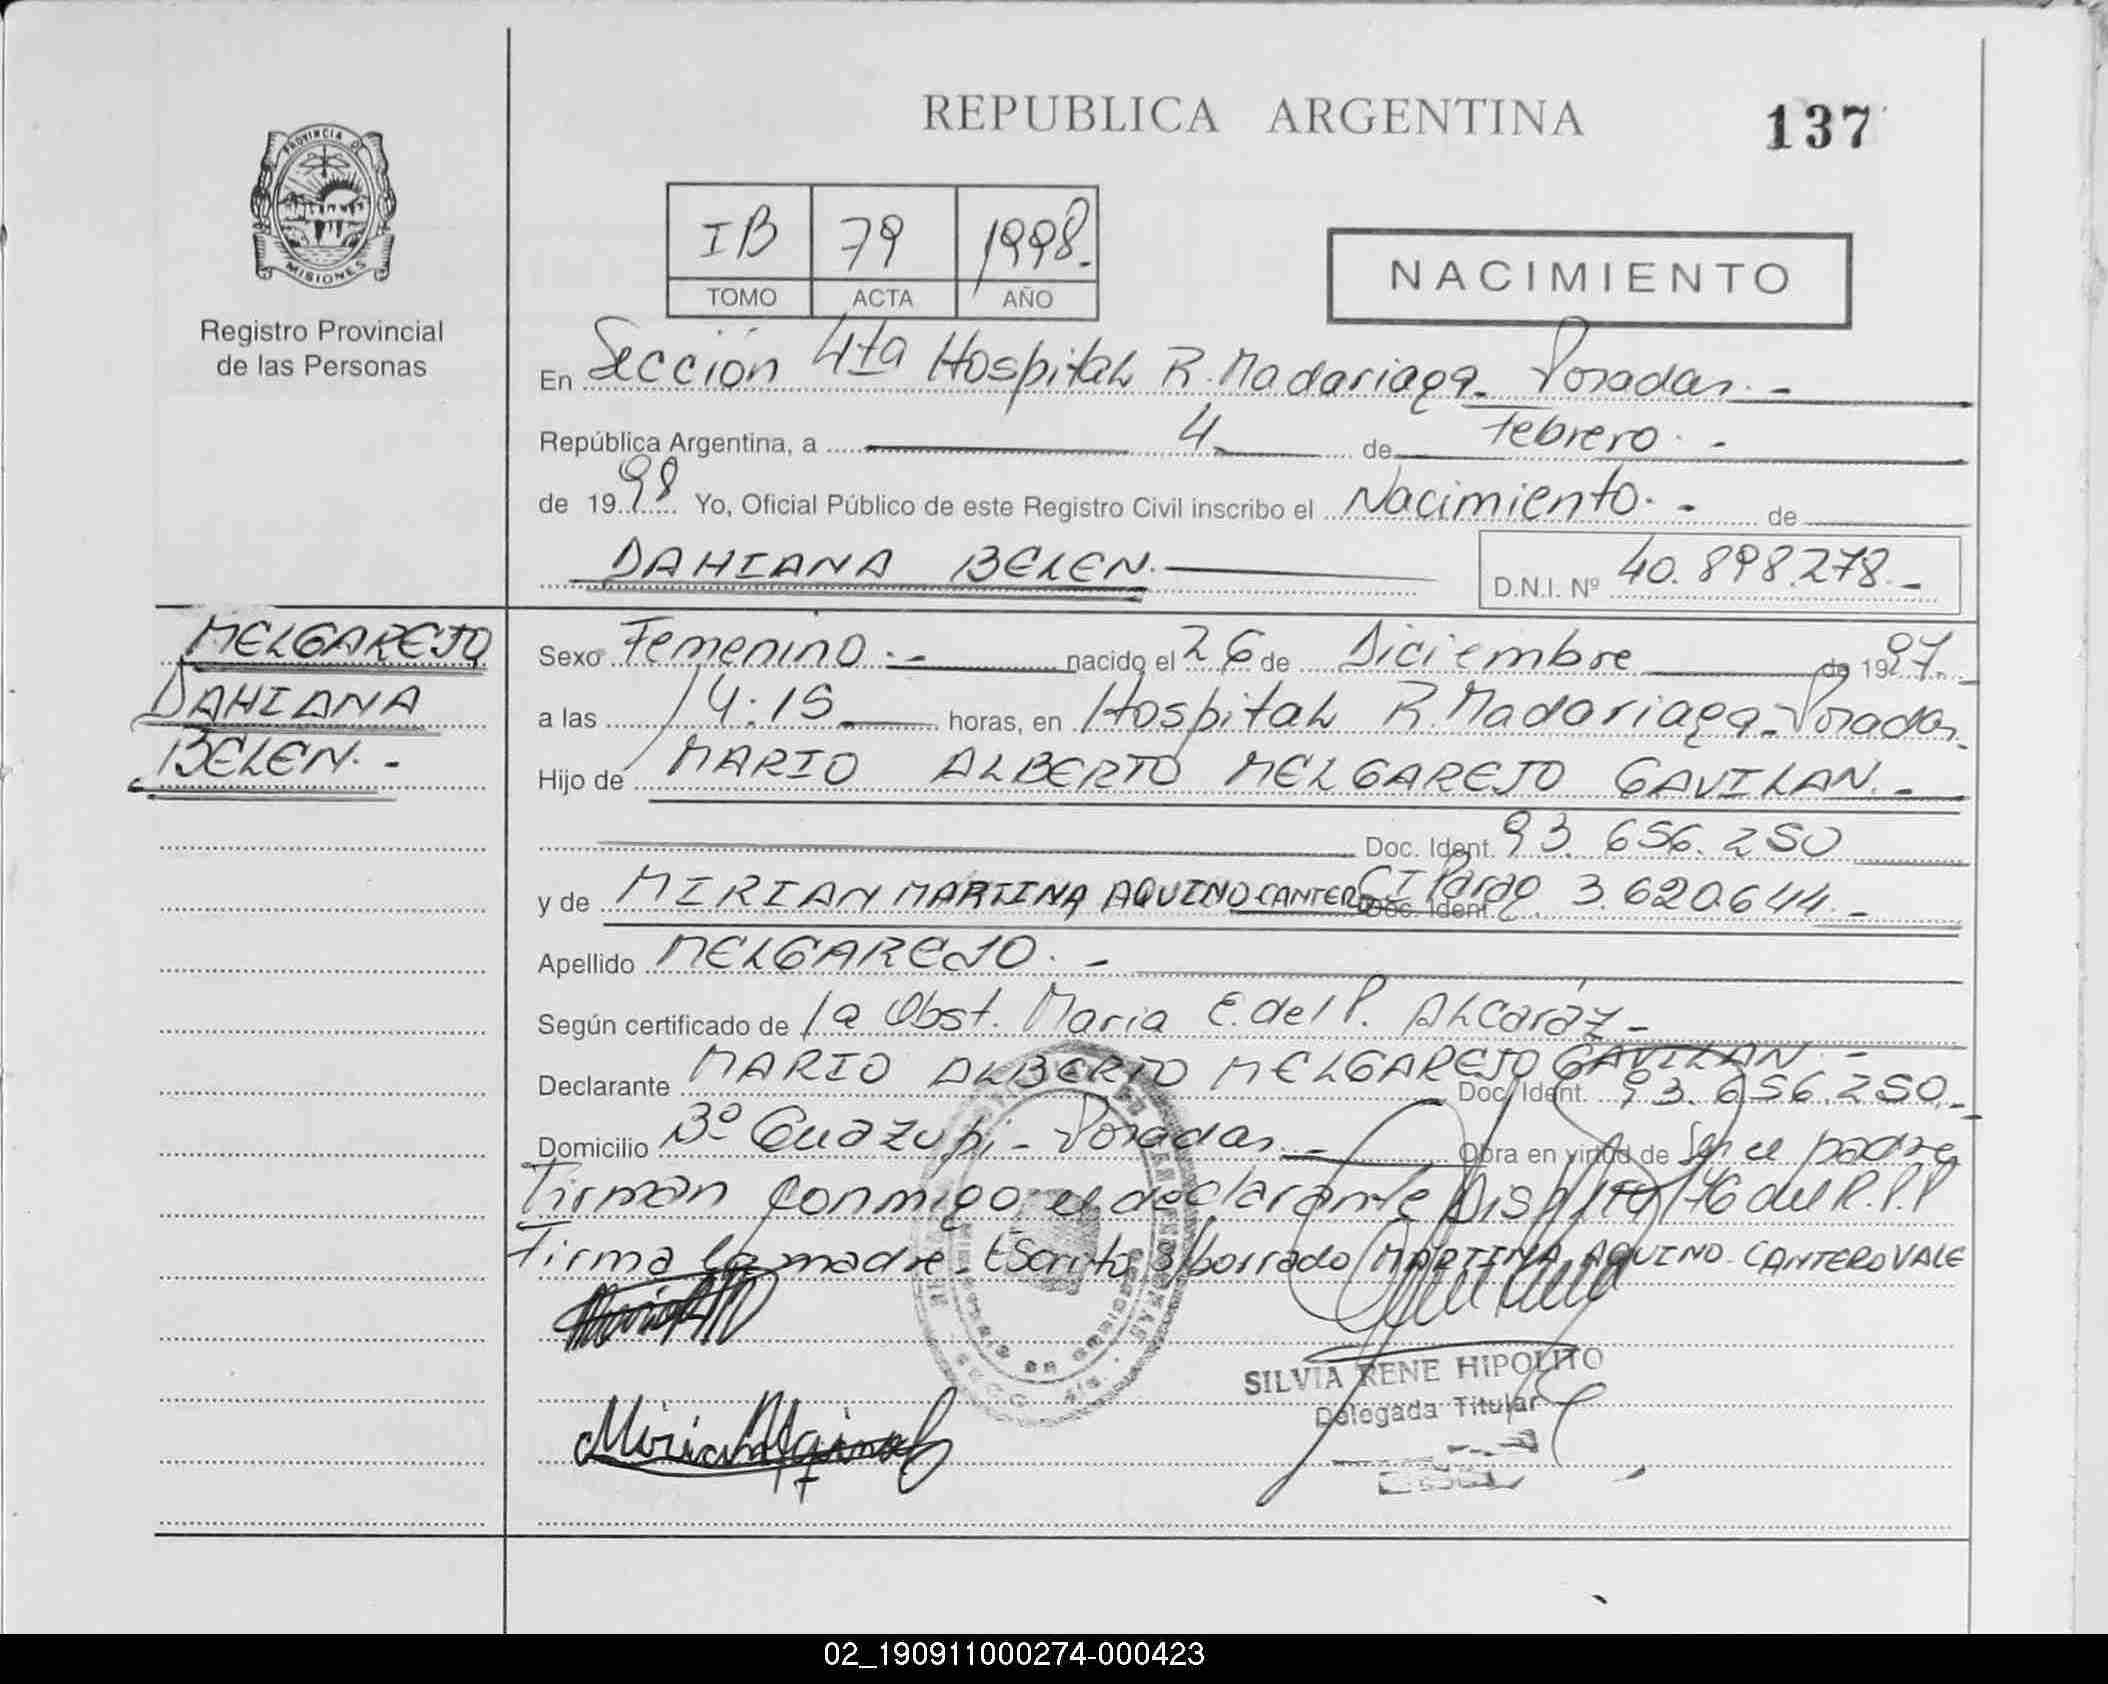 REPUBLICA ARGENTINA
137
PROVINCIA DE
MISIONES
Registro Provincial
de las Personas
IB 79 1998.
TOMO ACTA AÑO
NACIMIENTO
En Sección 4ta Hospital R. Madariaga - Posadas. -
República Argentina, a 4 de febrero. -
de 1998 Yo, Oficial Público de este Registro Civil inscribo el Nacimiento. - de
DAHIANA BELEN. D.N.I. Nº 40.898.278. -
MELGAREJO
DAHIANA
BELEN. -
Sexo Femenino. - nacido el 26 de Diciembre de 1997.
a las 14:15 horas, en Hospital R. Madariaga - Posadas
Hijo de MARIO ALBERTO MELGAREJO GAVILAN. -
Doc. Ident. 93.656.250
y de MIRIAN MARTINA AQUINO CANTERO Doc. Ident. CI Parag. 3.620.644. -
Apellido MELGAREJO. -
Según certificado de la Obst. Maria E. del P. Alcaráz -
Declarante MARIO ALBERTO MELGAREJO GAVILAN. - Doc. Ident. 93.656.250. -
Domicilio Bº Guazupi - Posadas. - Obra en virtud de Ser el padre
Firman conmigo el declarante 176 del R.P.P
Firma la madre - Escrito s/borrado MARTINA AQUINO CANTERO VALE
SILVIA RENE HIPOLITO
Delegada Titular
02_190911000274-000423